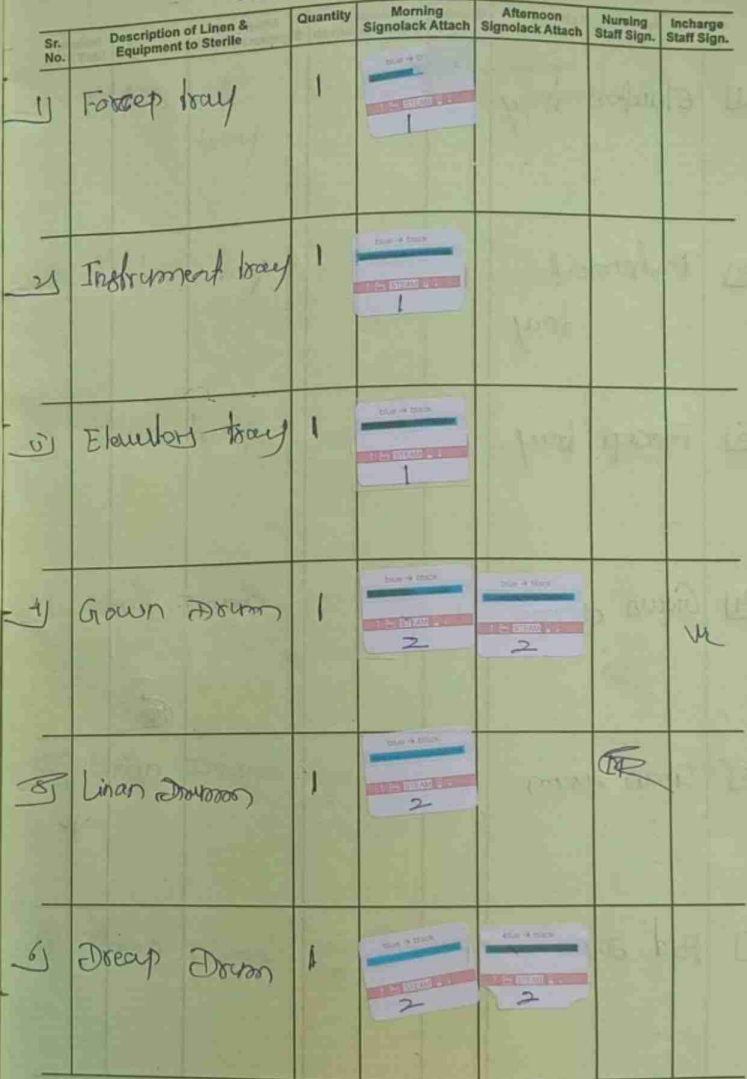 Sr. No.
Description of Linen & Equipment to Sterile
Quantity
Morning Signolack Attach
Afternoon Signolack Attach
Nursing Staff Sign.
Incharge Staff Sign.
1) Forcep tray 1
blue →
STEAM
1
2) Instrument tray 1
blue → black
STEAM
1
tray 1
blue → black
STEAM
1
4) Gown Drum 1
blue → black
STEAM
2
blue → black
STEAM
2
5) Linan 1
blue → black
STEAM
2
6) Dreap Drum 1
blue → black
STEAM
2
blue → black
STEAM
2